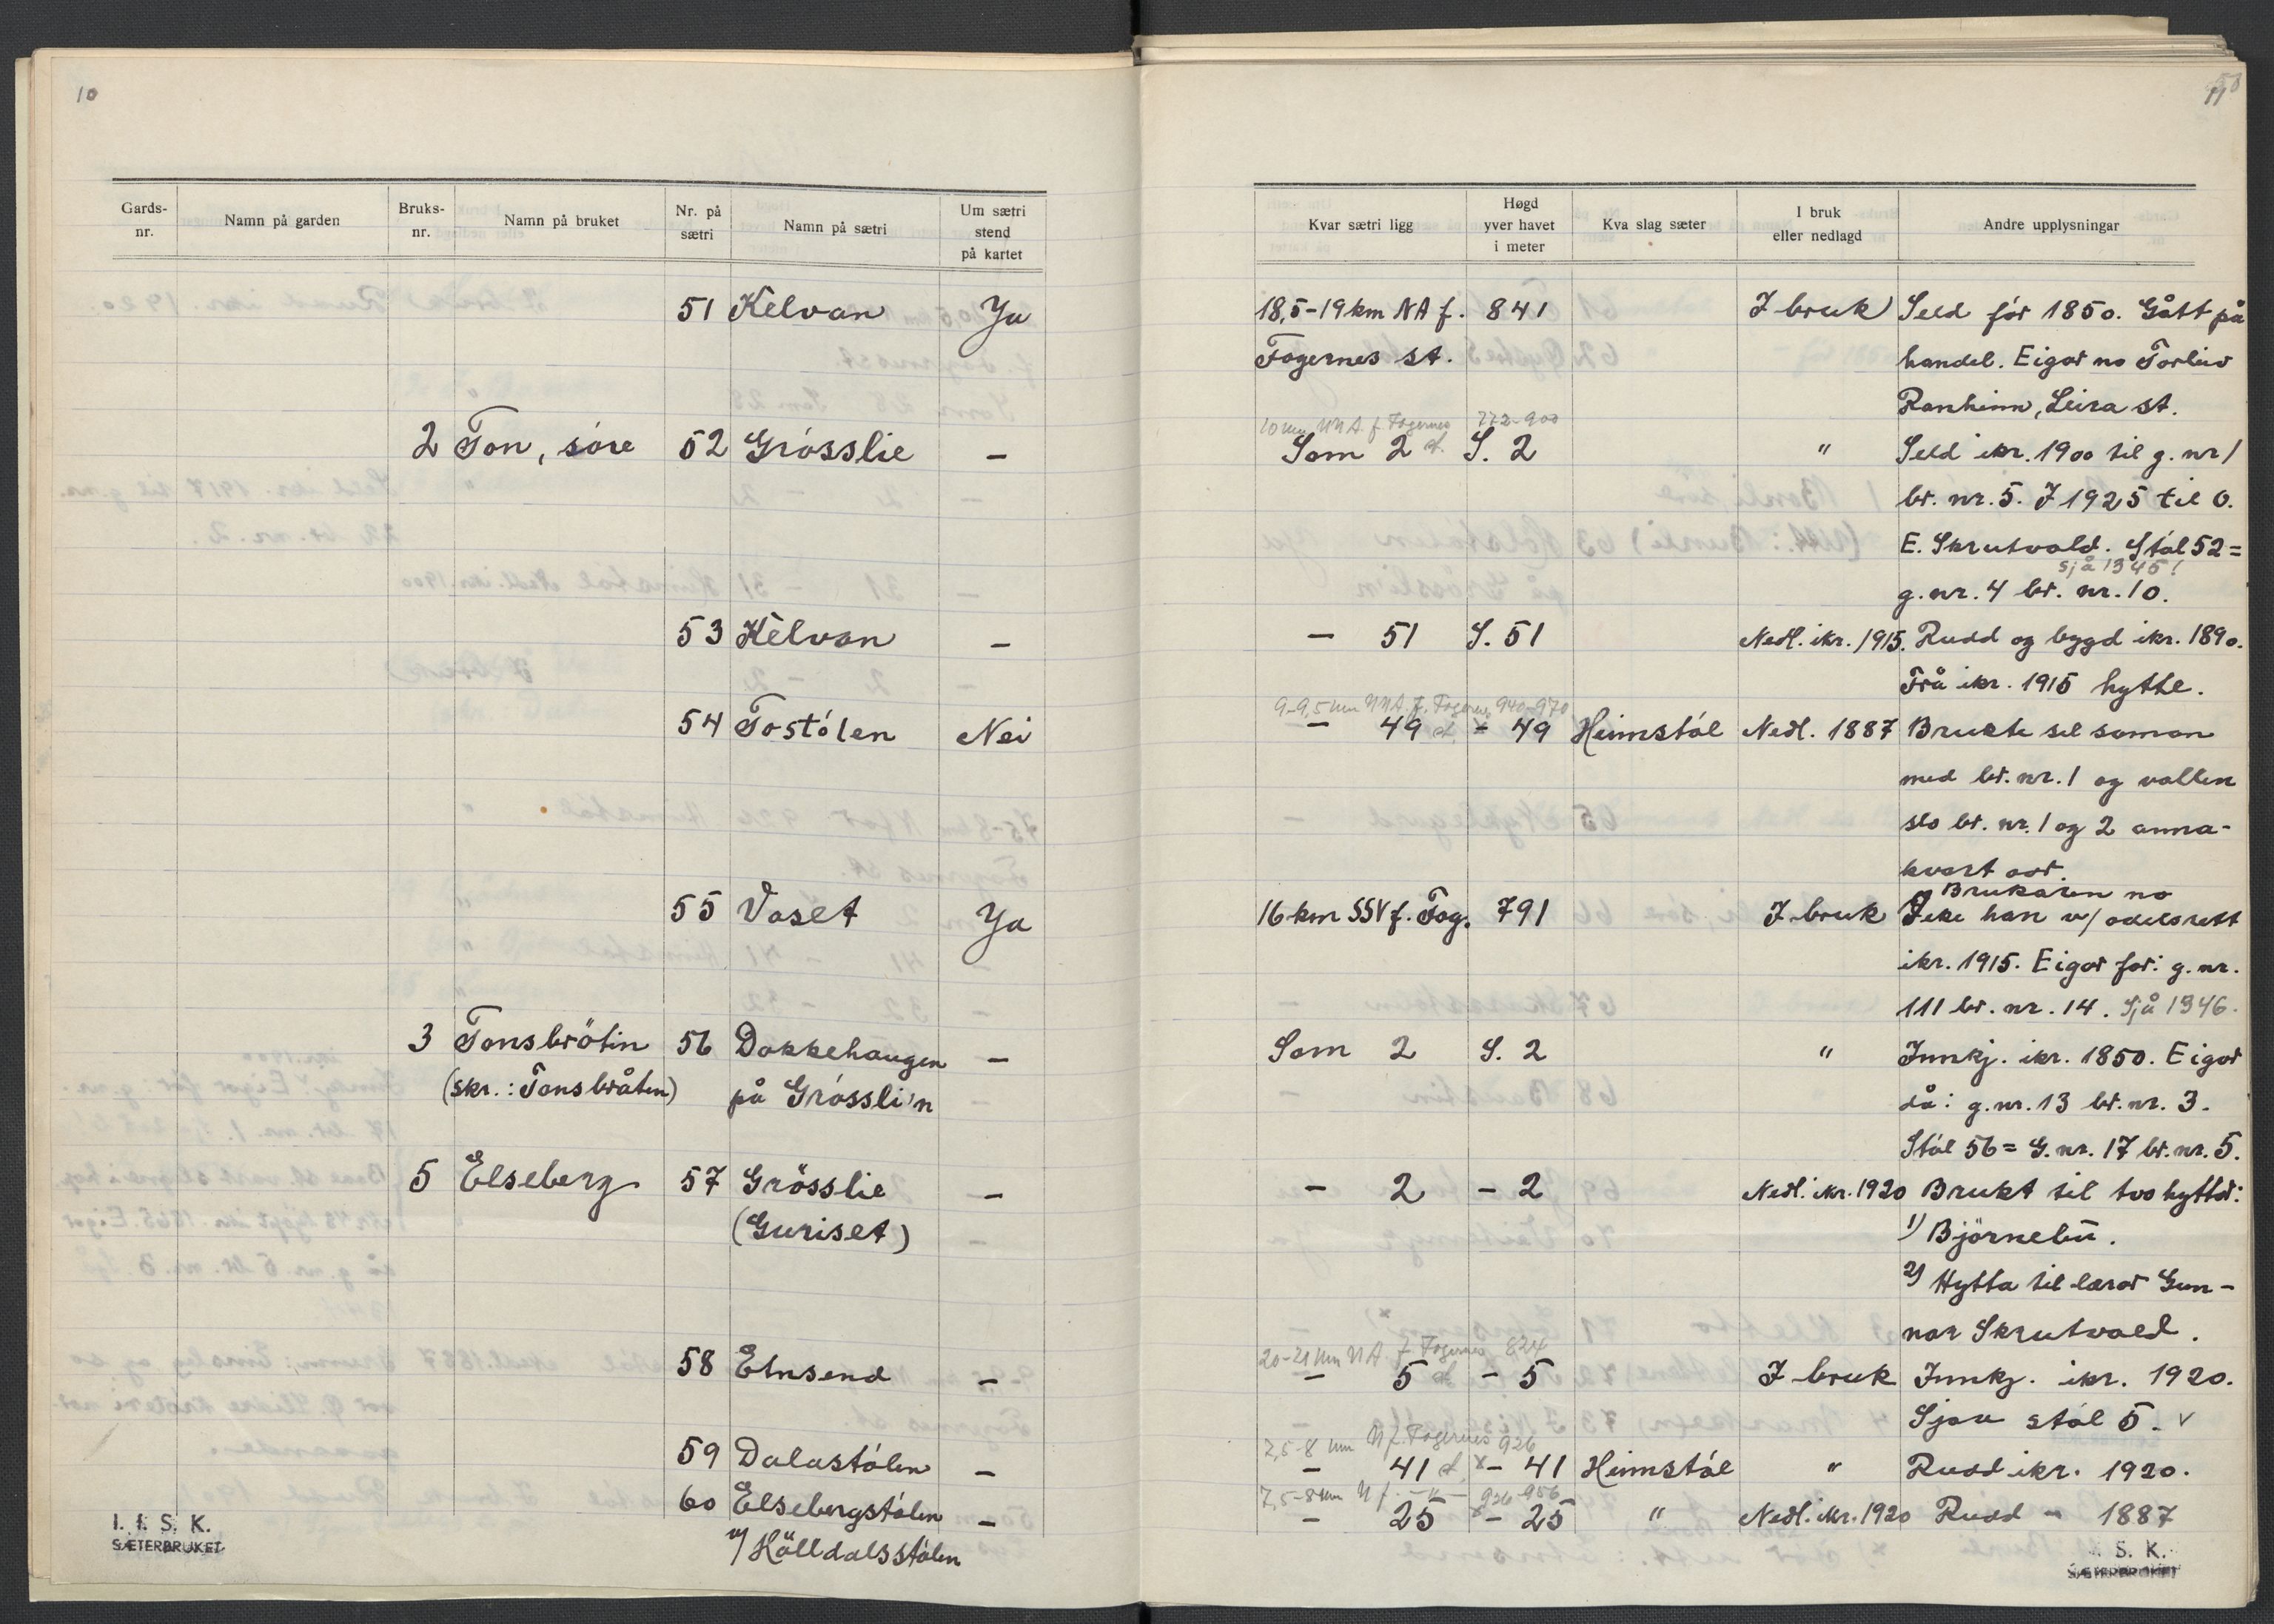 10
Gards-nr.
Namn på garden
Bruks-nr.
Namn på bruket
Nr. på sætri
Namn på sætri
Um sætri stend på kartet
51 Kelvan Ja
2 Ton, söre 52 Grösslie –
53 Kelvan –
54 Tostölen Nei
55 Vaset Ja
3 Tonsbrötin 56 Dokkehaugen –
(skr.: Tonsbråten) på Grössli'n
5 Elseberg 57 Grösslie –
(Guriset)
58 Elnsend –
59 Dalastölen –
60 Elsebergstölen –
Hölldalsstölen
I. f. S. K.
SÆTERBRUKET
11
Kvar sætri ligg
Høgd yver havet i meter
Kva slag sæter
I bruk eller nedlagd
Andre upplysningar
18,5-19 km NA f. 841 I bruk Seld för 1850. Gått på
Fagernes st. handel. Eigar no Torleiv
Ranheim, Leira st.
10 km NNA f Fagernes 772-900
Som 2 S. 2 " Seld ikr. 1900 til g. nr 1
br. nr. 5. I 1925 til O.
E. Skrutvold. Stöl 52 =
sjå 1345!
g. nr. 4 br. nr. 10.
– 51 S. 51 Nedl. ikr. 1915. Rudd og bygd ikr. 1890.
Frå ikr. 1915 hytte.
9-9,5 km NNA. f. Fagernes 940-970
– 49 – 49 Heimstöl Nedl. 1887 Brukte sel saman
med br. nr. 1 og vollen
slo br. nr. 1 og 2 anna-
kvart aar.
Brukaren no
16 km SSV f. Fag. 791 I bruk fekk han v/ odelsrett
ikr. 1915. Eigar før: g. nr.
111 br. nr. 14. Sjå 1346.
Som 2 S. 2 " Innkj. ikr. 1850. Eigar
då: g. nr. 13 br. nr. 3.
Stöl 56 = G. nr. 17 br. nr. 5.
– 2 – 2 Nedl. ikr. 1920 Brukt til tvo hyttor:
1) Björnebu.
2) Hytta til lærar Gun-
nar Skrutvold.
20-21 km NA f Fagernes 824
– 5 – 5 I bruk Innkj. ikr. 1920.
Sjaa stöl 5. v
7,5-8 km N f. Fagernes 926
– 41 x – 41 Heimstöl " Rudd ikr. 1920.
7,5-8 km N f. – " – 926-956
– 25 x – 25 " Nedl. ikr. 1920 Rudd – 1887
S. K.
SÆTERBRUKET